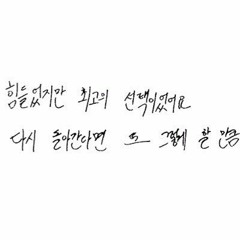 힘들었지만 최고의 선택이었어요
다시 돌아간다면 또 그렇게 할 만큼